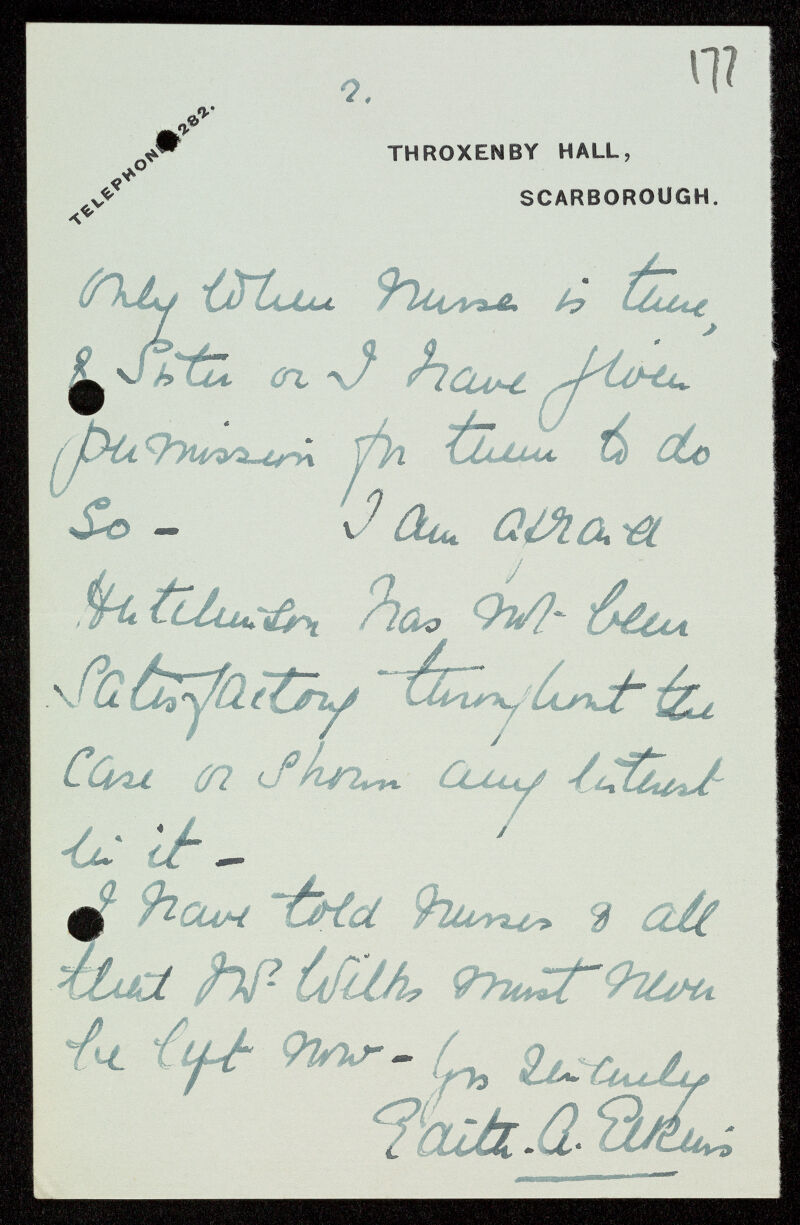 177
2.
TELEPHONE 282.
THROXENBY HALL,
SCARBOROUGH.
Only when Nurse is there,
& Sister or I have given
permission for them to do
so - I am afraid
Hutchinson has not been
satisfactory throughout the
case or shown any interest
in it -
I have told Nurses & all
that Mr. Wilks must never
be left now - Yrs sincerely
Edith. A. Elkins